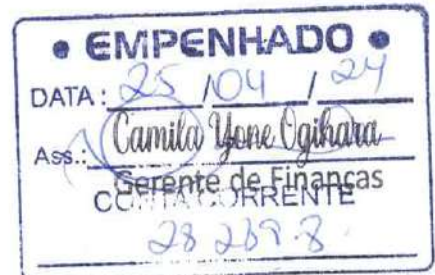 • EMPENHADO •
DATA: 25 / 04 / 24
Ass.: Camila Yone Ogihara
Gerente de Finanças
CONTA CORRENTE
28 289-8